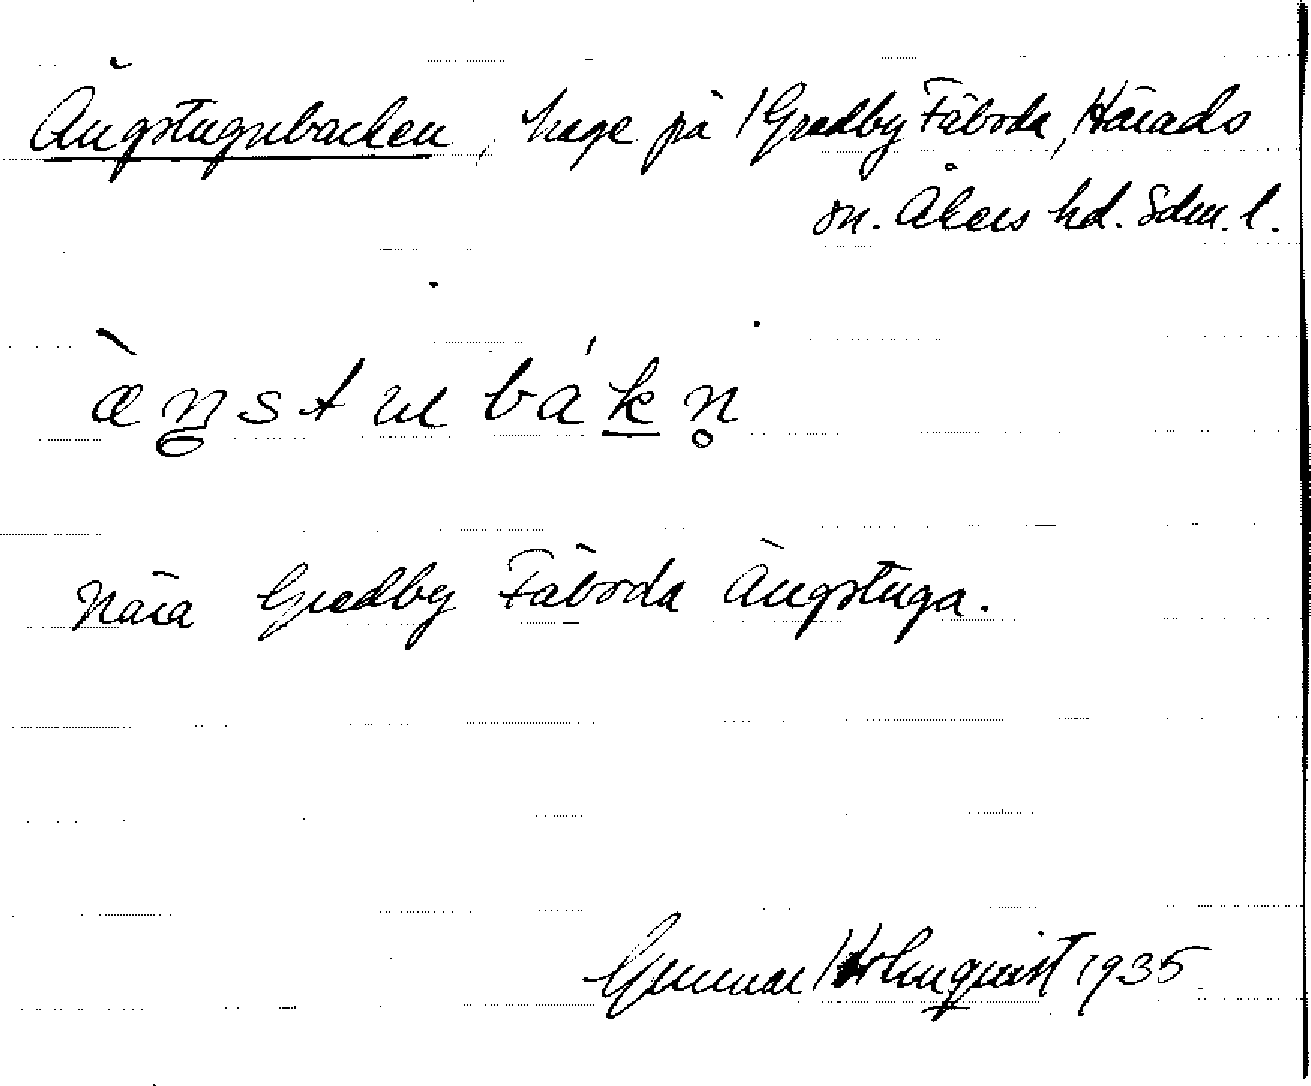 Ängstugubacken, hage på Gredby Fäboda, Härads
sn. Åkers hd. Sdm. l.
æ̀n̥stuɯbák̲n̥
Nära Gredby Fäboda Ängstuga.
Gunnar Holmquist 1935